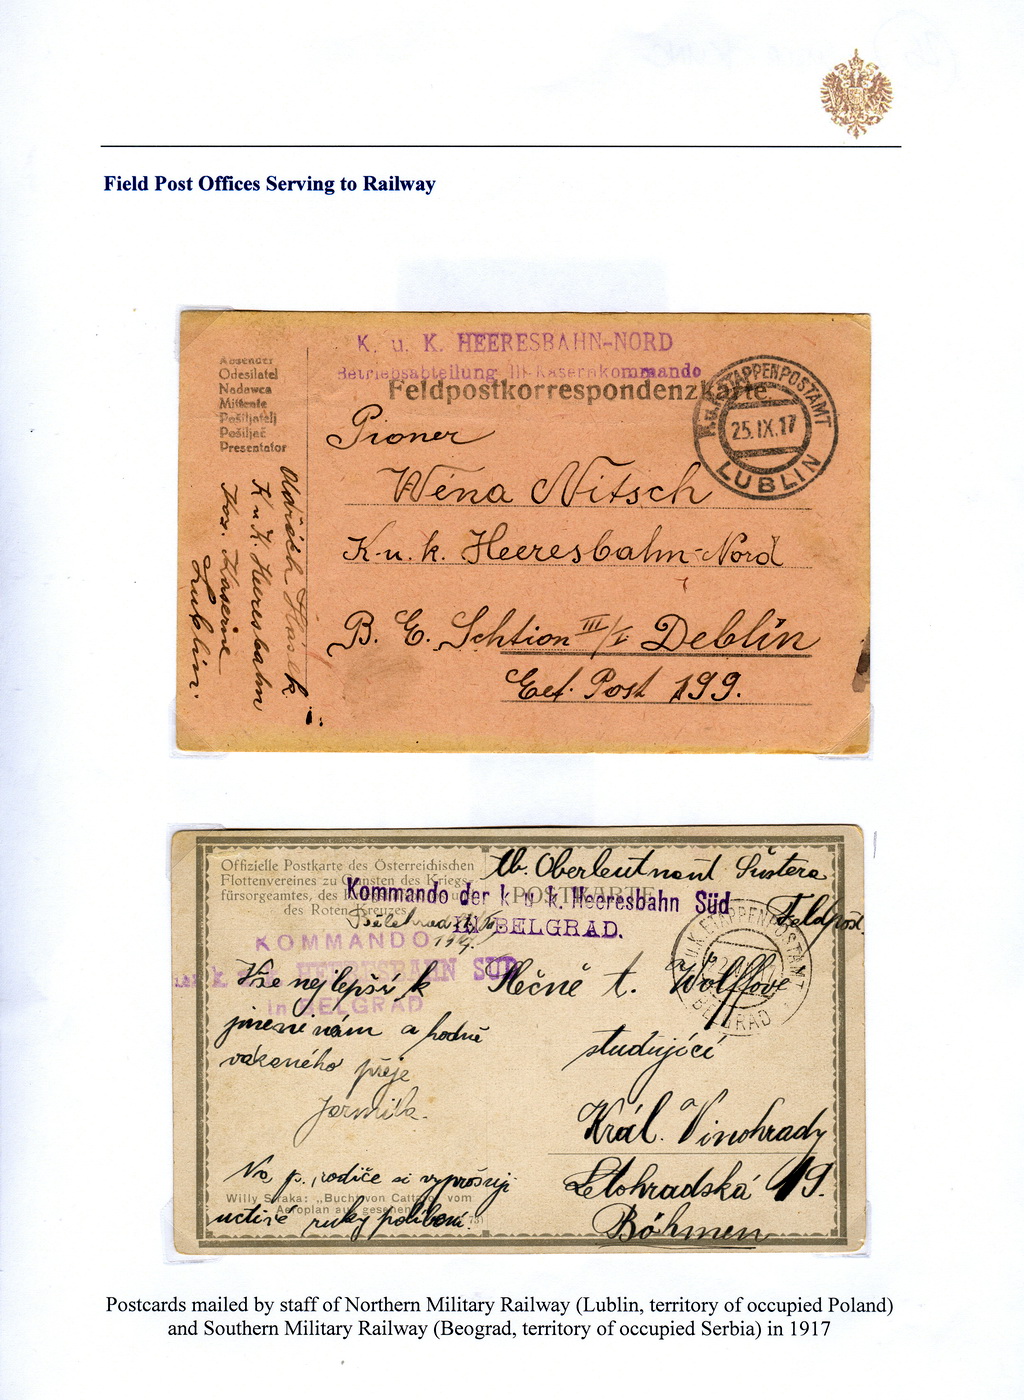 Field Post Offices Serving to Railway
K. u. K. HEERESBAHN-NORD
Betriebsabteilung III Kasernkommando
Feldpostkorrespondenzkarte.
Absender
Odesilatel
Nadawca
Mittente
Pošiljatelj
Pošiljač
Presentator
K.u.K. ETAPPENPOSTAMT
25.IX.17
LUBLIN
Pioner
Wéna Nitsch
K.u.k. Heeresbahn-Nord
B. E. Sektion III/V Deblin
Post 199.
Oldřich Hašek
K u K. Heeresbahn
Kaserne
Lublin.
Offizielle Postkarte des Österreichischen
Flottenvereines zu Gunsten des Kriegs-
fürsorgeamtes, des
des Roten Kreuzes
POSTKARTE
Oberleutnant Šustera
Feldpost.
Kommando der k. u. k. Heeresbahn Süd
IN BELGRAD.
K.u.K. ETAPPENPOSTAMT
BELGRAD
KOMMANDO
k. HEERESBAHN SÜD
in BELGRAD
Bělehrad
1917.
Vše nejlepší k
jmeninám a hodně
vzkazného přeje
Jarmila.
Na p. rodiče si vyprošuji
uctivé ruky políbení.
Slečně t. Wolffové
studující
Král. Vinohrady
Letohradská 19.
Böhmen
Willy Straka: „Bucht von Cattaro, vom
Aeroplan aus gesehen
Postcards mailed by staff of Northern Military Railway (Lublin, territory of occupied Poland)
and Southern Military Railway (Beograd, territory of occupied Serbia) in 1917